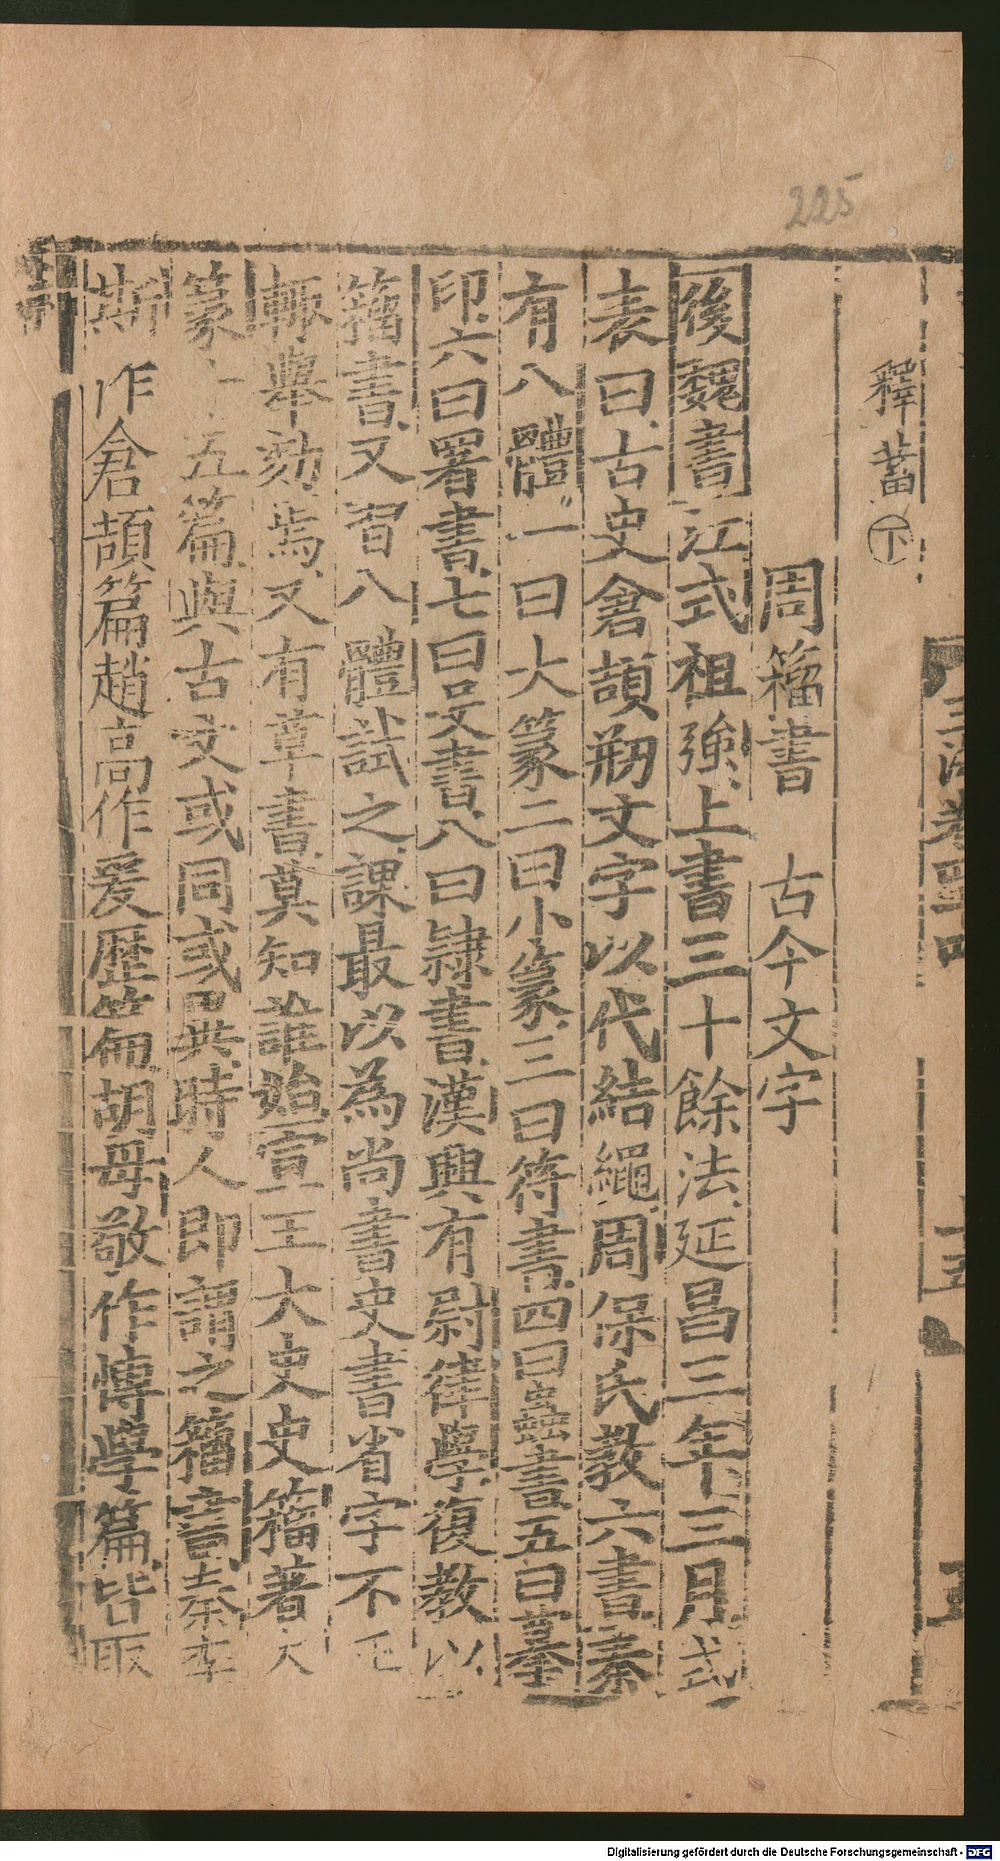 225
釋蓄下
周籀書 古今文字
後魏書江式祖強上書三十餘法延昌三年三月式
表曰古史倉頡剏文字以代結繩周保氏教六書秦
有八體一曰大篆二曰小篆三曰符書四曰蟲書五曰摹
印六曰署書七曰殳書八曰隷書漢興有尉律學復教以
籀書又習八體試之課最以為尚書史書省字不正
輙舉劾焉又有草書莫知誰始宣王大史史籀著大
篆十五篇與古文或同或異時人即謂之籀書秦李
斯作倉頡篇趙高作爰歷篇胡母敬作博學篇皆取
Digitalisierung gefördert durch die Deutsche Forschungsgemeinschaft - DFG